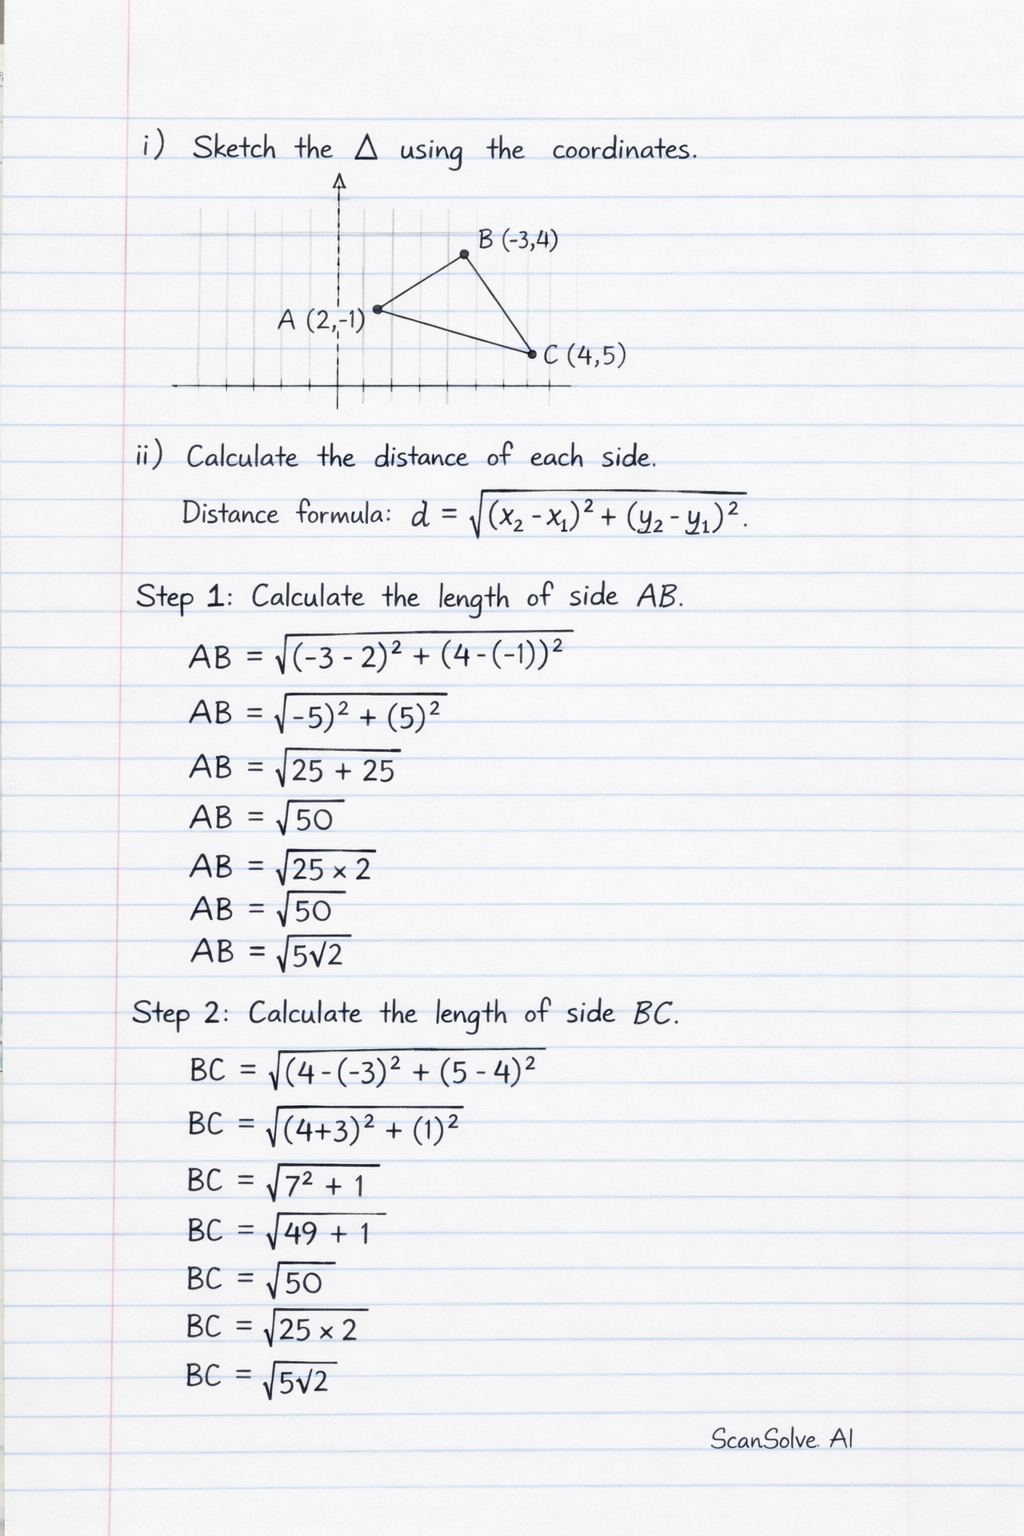 i) Sketch the Δ using the coordinates.
B (-3,4)
A (2,-1)
C (4,5)
ii) Calculate the distance of each side.
Distance formula: d = √(x₂ - x₁)² + (y₂ - y₁)².
Step 1: Calculate the length of side AB.
AB = √(-3 - 2)² + (4-(-1))²
AB = √-5)² + (5)²
AB = √25 + 25
AB = √50
AB = √25 × 2
AB = √50
AB = √5√2
Step 2: Calculate the length of side BC.
BC = √(4-(-3)² + (5 - 4)²
BC = √(4+3)² + (1)²
BC = √7² + 1
BC = √49 + 1
BC = √50
BC = √25 × 2
BC = √5√2
ScanSolve. AI